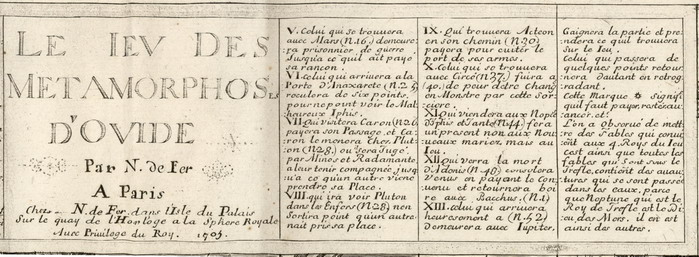 LE IEV DES
METAMORPHOSES
D'OVIDE
Par N. de Fer
A Paris
Chez N. de Fer, dans l'Isle du Palais
Sur le quay de l'Horloge a la Sphere Royale
Avec Privilege du Roy. 1705.
V. Celui qui se trouvera
avec Mars (N. 16.) demeure-
ra prisonnier de guerre
Jusqu'a ce qu'il ait payé
sa rançon.
VI. celui qui arrivera a la
Porte d'Anaxarete (N. 25)
reculera de Six points,
pour ne point voir le Mal-
heureux Iphis.
VII. Qui visitera Caron (N. 26)
payera son Passage, et Ca-
ron le menera Chez Plut-
on (N. 28.) ou Sera Jugé
par Minos et Radamante,
a leur tenir compagnee jusq
u'a ce qu'un autre vienne
prendre sa Place.
VIII. qui ira voir Pluton
dans les Enfers (N. 28.) n'en
Sortira point qu'un autre
n'ait pris sa place.
IX. Qui trouvera Acteon
en son chemin (N. 30)
payera pour eviter le
port de ses armes.
X. Celui qui se trouvera
avec Circé (N. 37.) fuira a
(40.) de peur d'etre Chang
en Monstre par cette Sor-
ciere.
XI. Qui viendra aux Nopces
d'Iphis et Iante (N. 44.) fera
un present non aux Nou-
veaux mariez, mais au
Ieu.
XII. Qui verra la mort
d'Adonis (N. 49.) consolera
Venus en payant le Con-
venu et retournera boi
re aux Bacchus. (N. 1.)
XIII. celui qui arrivera
heureusement a (N. 52)
demeurera avec Iupiter,
Gaignera la partie et pre-
ndera ce quil trouvera
Sur le Ieu.
Celui qui passera de
quelques points retour-
nera d'autant en retrog
radant.
Cette Marque ✡ Signifi
quil faut payer, rester, av
ancer, et:
L'on a Observé de mett-
re des Fables qui convi
ent aux 4 Roys du Ieu
c'est ainsi que toutes les
fables qui Sont sur le
trefle, contient des avan-
tures qui se sont passées
dans les eaux, parce
que Neptune qui est le
Roy de Trefle est le Di-
eu des Mers. il en est
ainsi des autres.